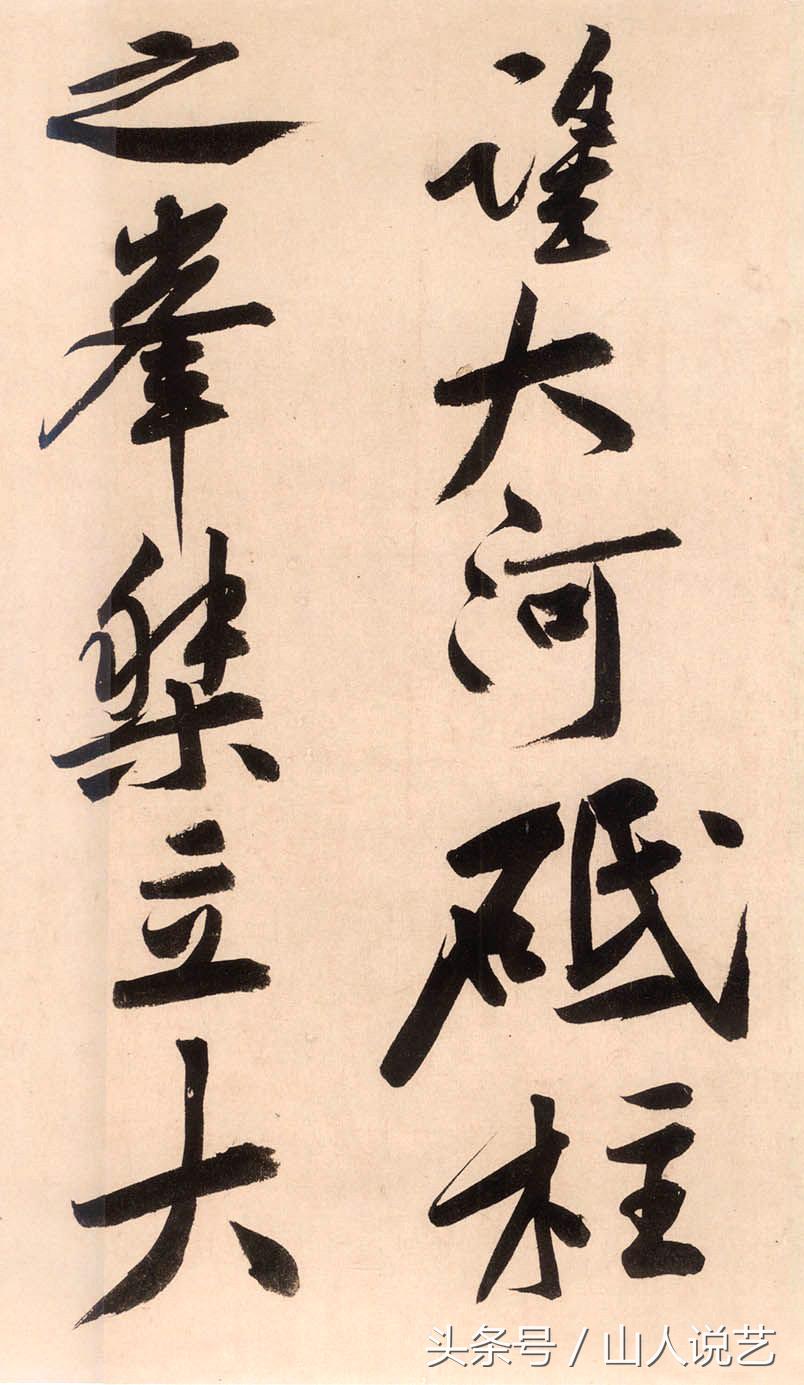 望大河砥柱
之峯桀立大
头条号 / 山人说艺